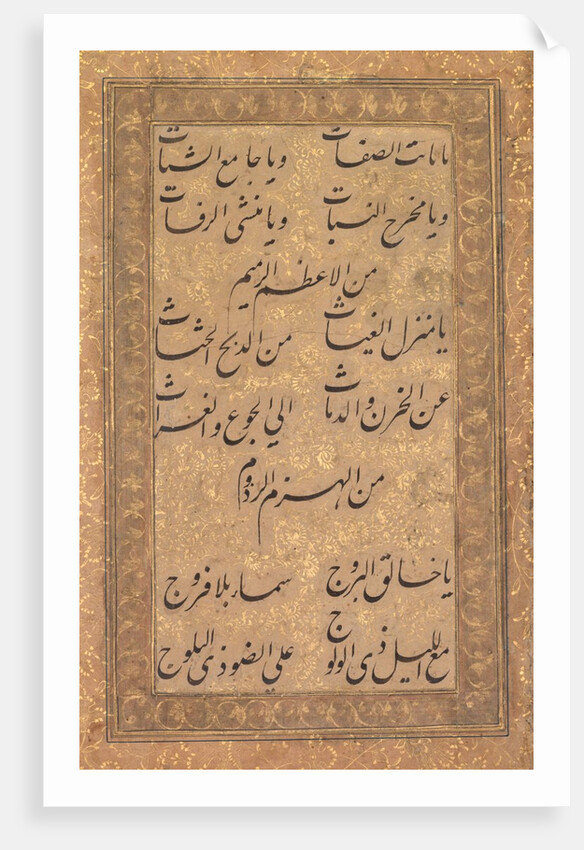 یا ثابت الصفات ویا جامع الشتات
ویا مخرج النبات ویا منشی الرفات
من الاعظم الرمیم
یا منزل الغیاث من الدبح الحثاث
عن الحزن والدماث الی الجوع والغراث
من الهزم الرذوم
یا خالق البروج سماء بلا فروج
مع اللیل ذی الولوج علی الضو ذی البلوج